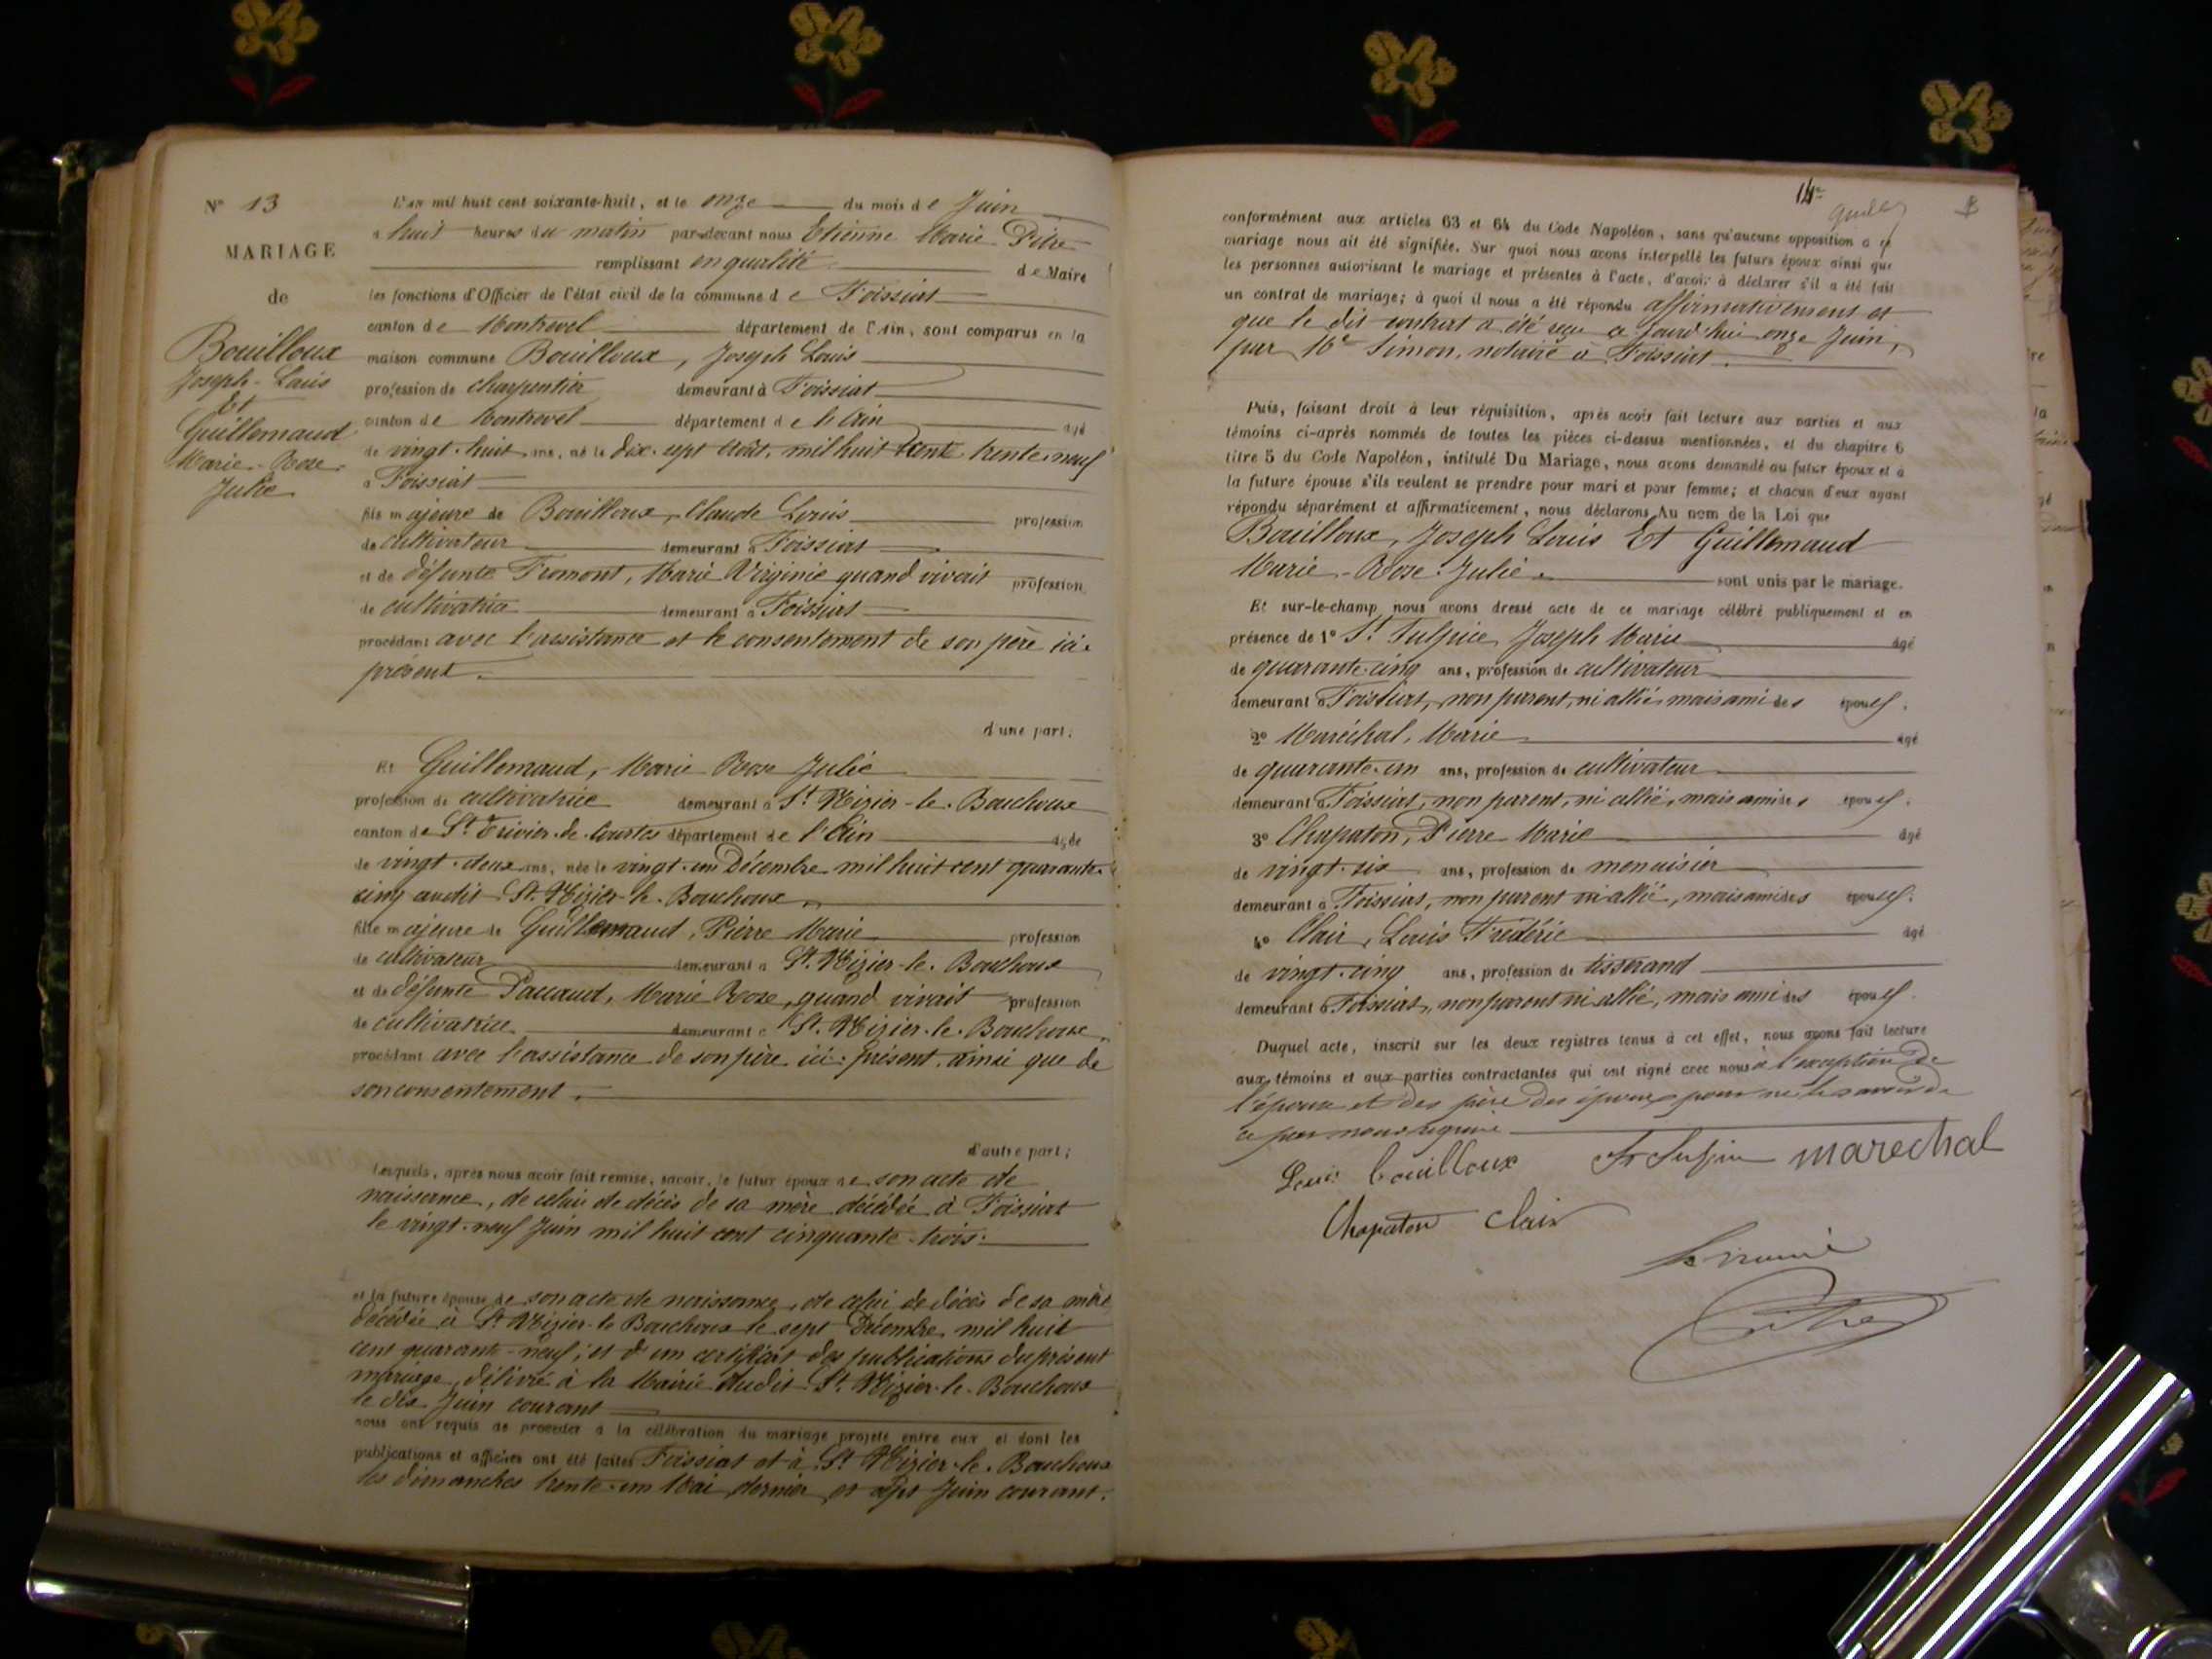 N° 13
MARIAGE
de
Bouilloux
Joseph-Louis
Et
Guillemaud
Marie-Rose
Julie
L'an mil huit cent soixante-huit, et le onze du mois de Juin
à huit heures du matin par-devant nous Etienne Marie Pitre
remplissant en qualité de Maire
les fonctions d'Officier de l'état civil de la commune de Foissiat
canton de Montrevel département de l'Ain, sont comparus en la
maison commune Bouilloux, Joseph Louis
profession de charpentier demeurant à Foissiat
canton de Montrevel département de l'Ain agé
de vingt-huit ans, né le dix-sept Août, mil huit cent trente-neuf
à Foissiat
fils majeure de Bouilloux, Claude Louis profession
de cultivateur demeurant à Foissiat
et de défunte Fromont, Marie Virginie quand vivait profession
de cultivatrice demeurant à Foissiat
procédant avec l'assistance et le consentement de son père ici-
présent.
d'une part;
Et Guillemaud, Marie Rose Julie
profession de cultivatrice demeurant à St. Nizier-le-Bouchoux
canton de St. Trivier-de-Courtes département de l'Ain agée
de vingt-deux ans, née le vingt-un Décembre mil huit cent quarante-
cinq audit St. Nizier-le-Bouchoux
fille majeure de Guillemaud, Pierre Marie profession
de cultivateur demeurant à St. Nizier-le-Bouchoux
et de défunte Paccaud, Marie Rose, quand vivait profession
de cultivatrice demeurant à St. Nizier-le-Bouchoux,
procédant avec l'assistance de son père ici-présent, ainsi que de
son consentement.
d'autre part;
Lesquels, après nous avoir fait remise, savoir, le futur époux de son acte de
naissance, de celui de décès de sa mère décédée à Foissiat
le vingt-neuf Juin mil huit cent cinquante-trois.
et la future épouse de son acte de naissance, de celui de décès de sa mère
décédée à St Nizier-le-Bouchoux le sept Décembre mil huit
cent quarante-neuf; et d'un certificat des publications du présent
mariage, délivré à la Mairie dudit St. Nizier-le-Bouchoux
le dix Juin courant
nous ont requis de procéder à la célébration du mariage projeté entre eux et dont les
publications et affiches ont été faites Foissiat et à St Nizier-le-Bouchoux
les dimanches trente-un Mai dernier et sept Juin courant.
conformément aux articles 63 et 64 du Code Napoléon, sans qu'aucune opposition à ce
mariage nous ait été signifiée. Sur quoi nous avons interpellé les futurs époux ainsi que
les personnes autorisant le mariage et présentes à l'acte, d'avoir à déclarer s'il a été fait
un contrat de mariage; à quoi il nous a été répondu affirmativement et
que le dit contrat a été reçu ce jourd'hui onze Juin,
par Me Simon, notaire à Foissiat.
Puis, faisant droit à leur réquisition, après avoir fait lecture aux parties et aux
témoins ci-après nommés de toutes les pièces ci-dessus mentionnées, et du chapitre 6
titre 5 du Code Napoléon, intitulé Du Mariage, nous avons demandé au futur époux et à
la future épouse s'ils veulent se prendre pour mari et pour femme; et chacun d'eux ayant
répondu séparément et affirmativement, nous déclarons Au nom de la Loi que
Bouilloux, Joseph Louis Et Guillemaud
Marie-Rose-Julie sont unis par le mariage.
Et sur-le-champ nous avons dressé acte de ce mariage célébré publiquement et en
présence de 1° St. Sulpice Joseph Marie âgé
de quarante-cinq ans, profession de cultivateur
demeurant à Foissiat, non parent, ni allié mais ami des époux.
2° Maréchal, Marie âgé
de quarante-un ans, profession de cultivateur
demeurant à Foissiat, non parent, ni allié, mais ami des époux.
3° Chapaton, Pierre Marie âgé
de vingt-six ans, profession de menuisier
demeurant à Foissiat, non parent ni allié, mais ami des époux.
4° Clair, Louis Frédéric âgé
de vingt-cinq ans, profession de tisserand
demeurant à Foissiat, non parent ni allié, mais ami des époux.
Duquel acte, inscrit sur les deux registres tenus à cet effet, nous avons fait lecture
aux témoins et aux parties contractantes qui ont signé avec nous à l'exception de
l'épouse et des père des époux pour ne le savoir de
ce par nous requis
Louis Bouilloux St Sulpice marechal
Chapaton Clair
Le maire
Pitre